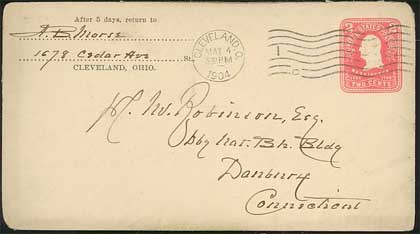 After 5 days, return to
A. B. Morse
1678 Cedar Ave
CLEVELAND, OHIO.
CLEVELAND, O.
MAY 4
PM
1904
1
C
UNITED STATES
2
2
WASHINGTON
TWO CENTS
H. W. Robinson, Esq.
Nat. Bk. Bldg
Danbury
Connecticut